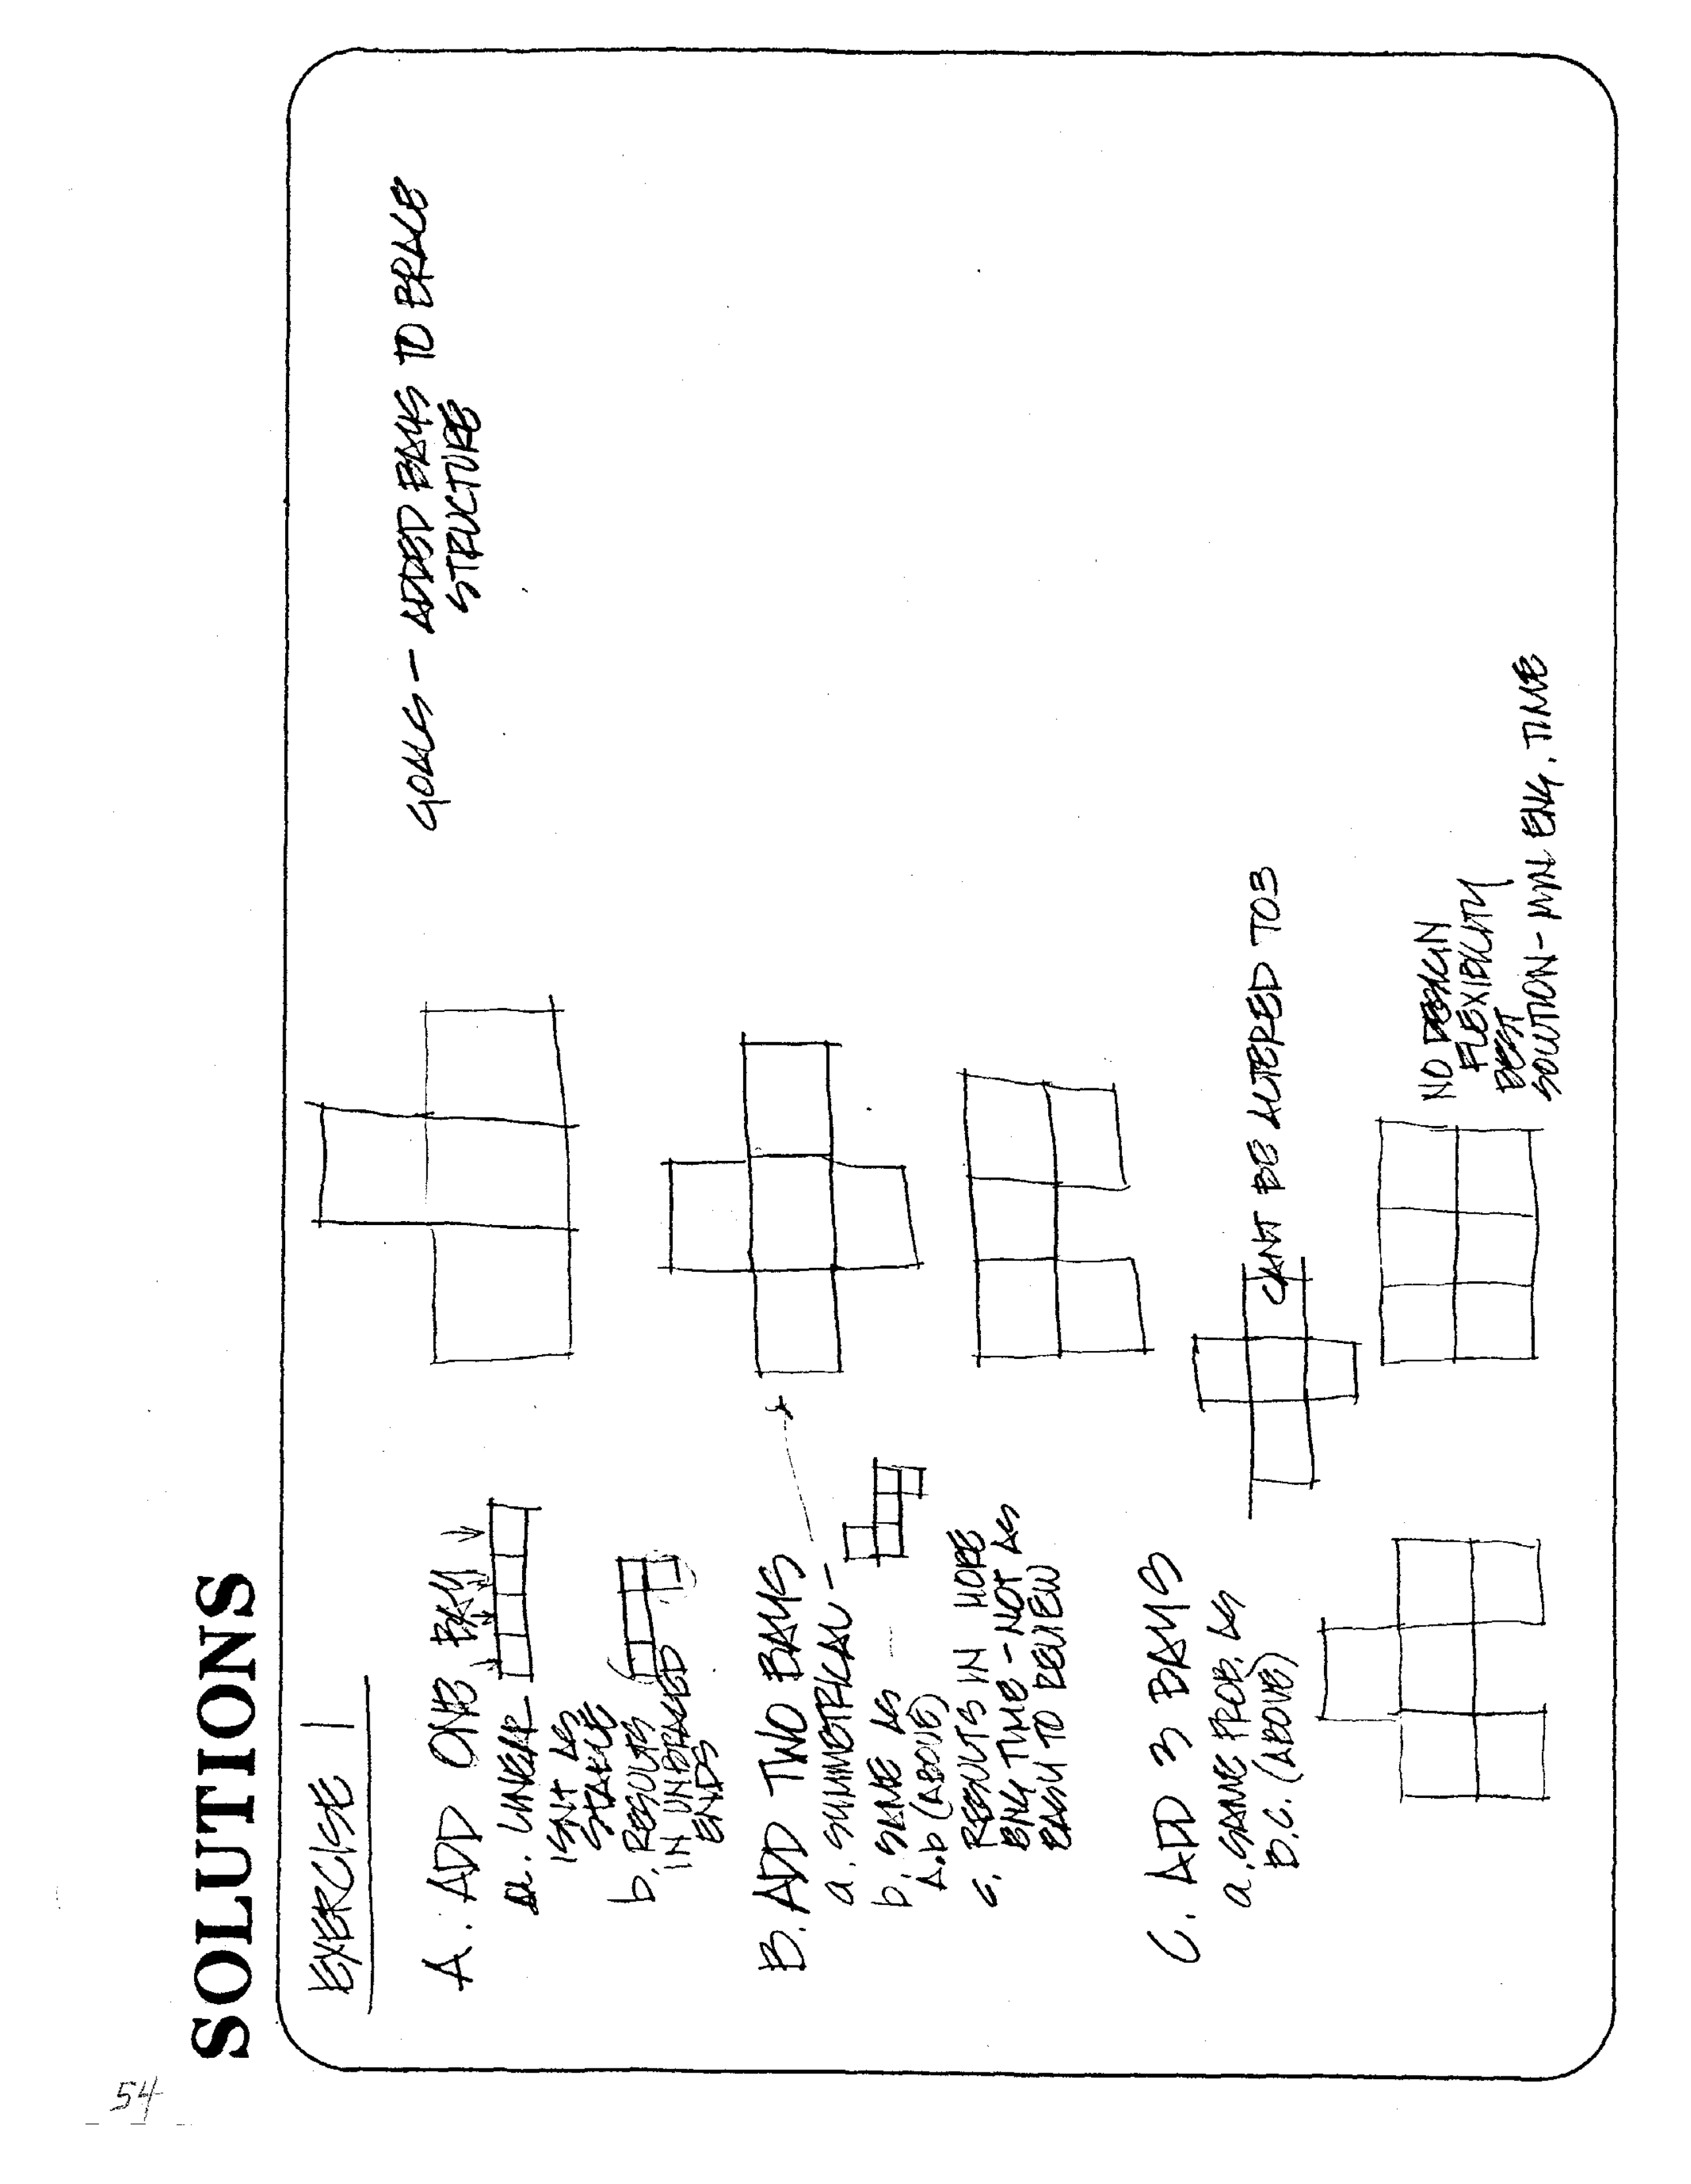 SOLUTIONS
EXERCISE 1
GOALS - ADDED BAYS TO BRACE
STRUCTURE
A. ADD ONE BAY
a. LINEAR
ISNT AS
STABLE
b. RESULTS
IN UNBRACED
ENDS
B. ADD TWO BAYS
a. SYMMETRICAL -
b. SAME AS
A.b (ABOVE)
c. RESULTS IN MORE
ENG TIME - NOT AS
EASY TO REVIEW
C. ADD 3 BAYS
a. SAME PROB. AS
B.C. (ABOVE)
CANT BE ALTERED TO 3
NO DESIGN
FLEXIBILITY
BEST
SOLUTION - MIN ENG. TIME
54